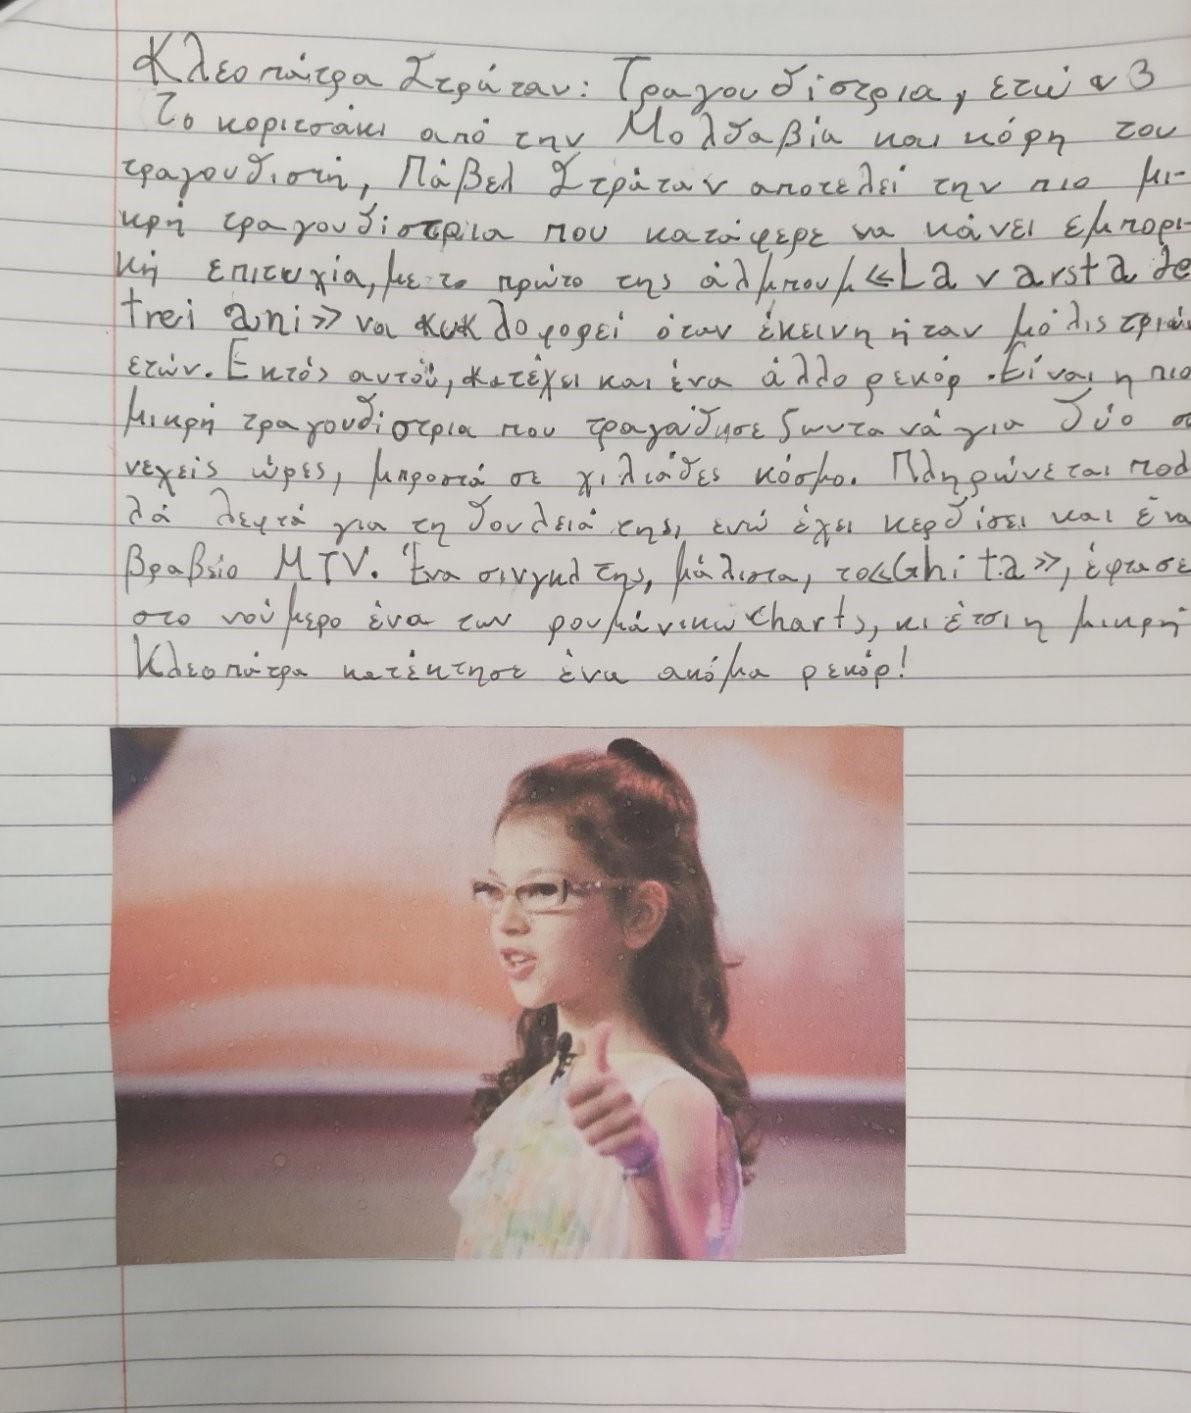 Κλεοπάτρα Στράταν: Τραγουδίστρια, ετών 3
Το κοριτσάκι από την Μολδαβία και κόρη του
τραγουδιστή, Πάβελ Στράταν αποτελεί την πιο μι-
κρή τραγουδίστρια που κατάφερε να κάνει εμπορι-
κή επιτυχία, με το πρώτο της άλμπουμ «La varsta de
trei ani» να κυκλοφορεί όταν έκεινη ήταν μόλις τριών
ετών. Εκτός αυτού, κατέχει και ένα άλλο ρεκόρ. Είναι η πιο
μικρή τραγουδίστρια που τραγούδησε ζωντανά για δύο σ
νεχείς ώρες, μπροστά σε χιλιάδες κόσμο. Πληρώνεται πολ
λά λεφτά για τη δουλειά της, ενώ έχει κερδίσει και ένα
βραβείο MTV. Ένα σινγκλ της, μάλιστα, το «Ghita», έφτασε
στο νούμερο ένα των ρουμάνικω charts, κι έτσι η μικρή
Κλεοπάτρα κατέκτησε ένα ακόμα ρεκόρ!